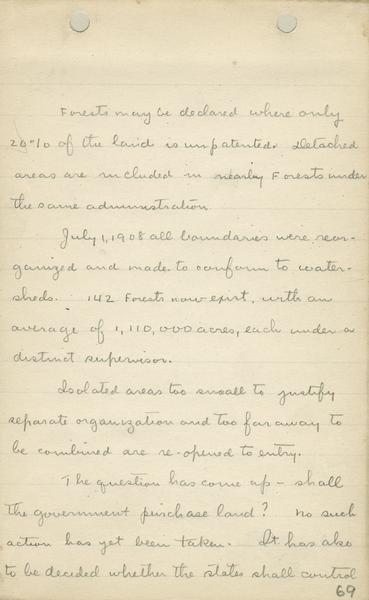 Forests may be declared where only
20% of the land is unpatented. Detached
areas are included in nearby Forests under
the same administration
July 1, 1908 all boundaries were reor-
ganized and made to conform to water-
sheds. 142 Forests now exist, with an
average of 1,110,000 acres, each under a
distinct supervisor.
Isolated areas too small to justify
separate organization and too far away to
be combined are re-opened to entry.
The question has come up - shall
the government purchase land? No such
action has yet been taken. It has also
to be decided whether the states shall control
69